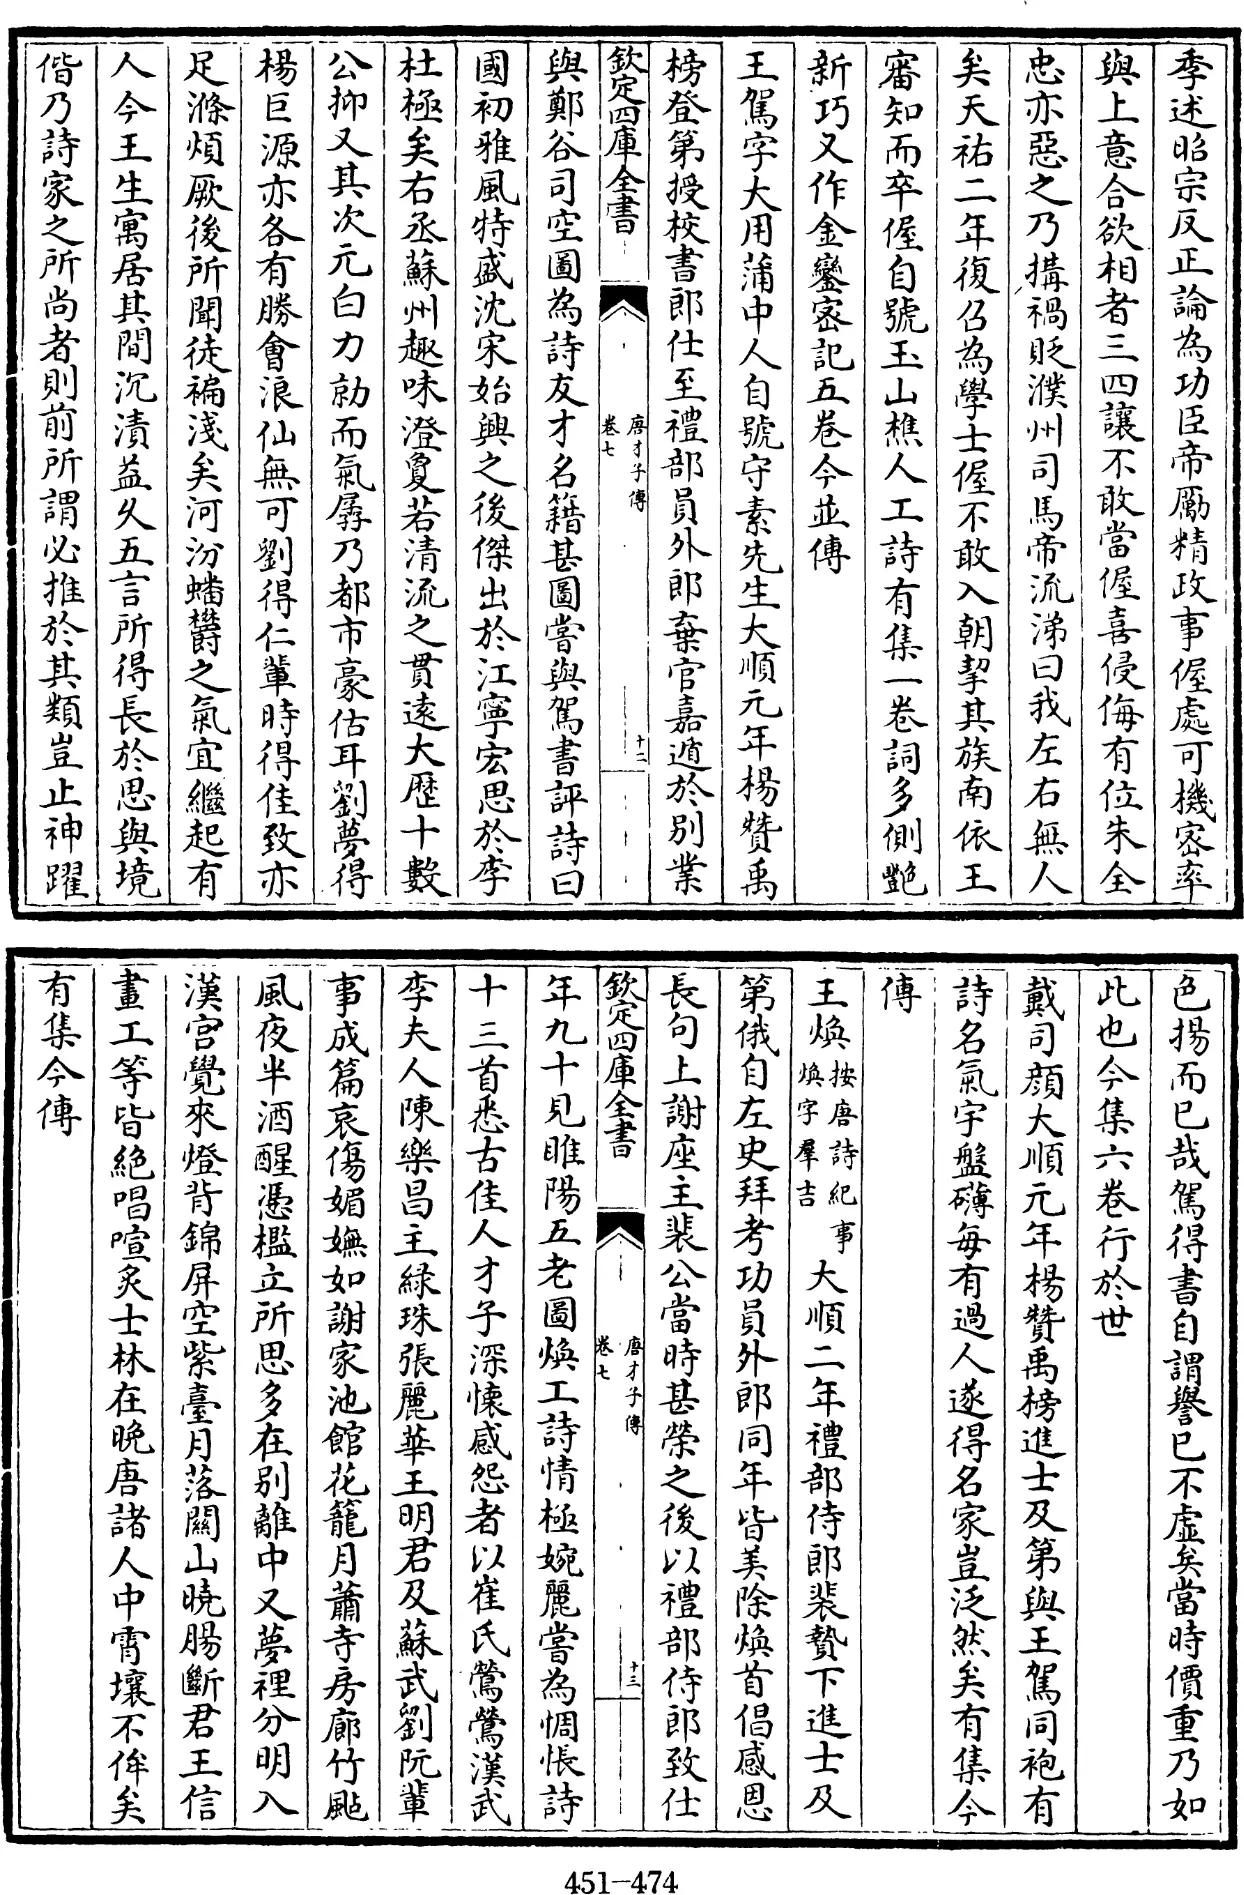 季述昭宗反正論為功臣帝勵精政事偓處可機密率
與上意合欲相者三四讓不敢當偓喜侵侮有位朱全
忠亦惡之乃搆禍貶濮州司馬帝流涕曰我左右無人
矣天祐二年復召為學士偓不敢入朝挈其族南依王
審知而卒偓自號玉山樵人工詩有集一卷詞多側艷
新巧又作金鑾密記五卷今並傳
王駕字大用蒲中人自號守素先生大順元年楊贊禹
榜登第授校書郎仕至禮部員外郎棄官嘉遁於別業
欽定四庫全書
唐才子傳
卷七
十二
與鄭谷司空圖為詩友才名籍甚圖嘗與駕書評詩曰
國初雅風特盛沈宋始興之後傑出於江寧宏思於李
杜極矣右丞蘇州趣味澄夐若清流之貫逺大歴十數
公抑又其次元白力勍而氣孱乃都市豪估耳劉夢得
楊巨源亦各有勝會浪仙無可劉得仁輩時得佳致亦
足滌煩厥後所聞徒褊淺矣河汾蟠欝之氣宜繼起有
人今王生寓居其間沉漬益久五言所得長於思與境
偕乃詩家之所尚者則前所謂必推於其類豈止神躍
色揚而已哉駕得書自謂譽已不虛矣當時價重乃如
此也今集六卷行於世
戴司顔大順元年楊贊禹榜進士及第與王駕同袍有
詩名氣宇盤礴每有過人遂得名家豈泛然矣有集今
傳
王煥按唐詩紀事煥字羣吉大順二年禮部侍郎裴贄下進士及
第俄自左史拜考功員外郎同年皆美除煥首倡感恩
長句上謝座主裴公當時甚榮之後以禮部侍郎致仕
欽定四庫全書
唐才子傳
卷七
十三
年九十見睢陽五老圖煥工詩情極婉麗嘗為惆悵詩
十三首悉古佳人才子深懷感怨者以崔氏鶯鶯漢武
李夫人陳樂昌主緑珠張麗華王明君及蘇武劉阮輩
事成篇哀傷媚嫵如謝家池館花籠月蕭寺房廊竹颭
風夜半酒醒憑檻立所思多在別離中又夢裡分明入
漢宮覺來燈背錦屏空紫臺月落關山曉腸斷君王信
畫工等皆絕唱喧炙士林在晚唐諸人中霄壤不侔矣
有集今傳
451-474